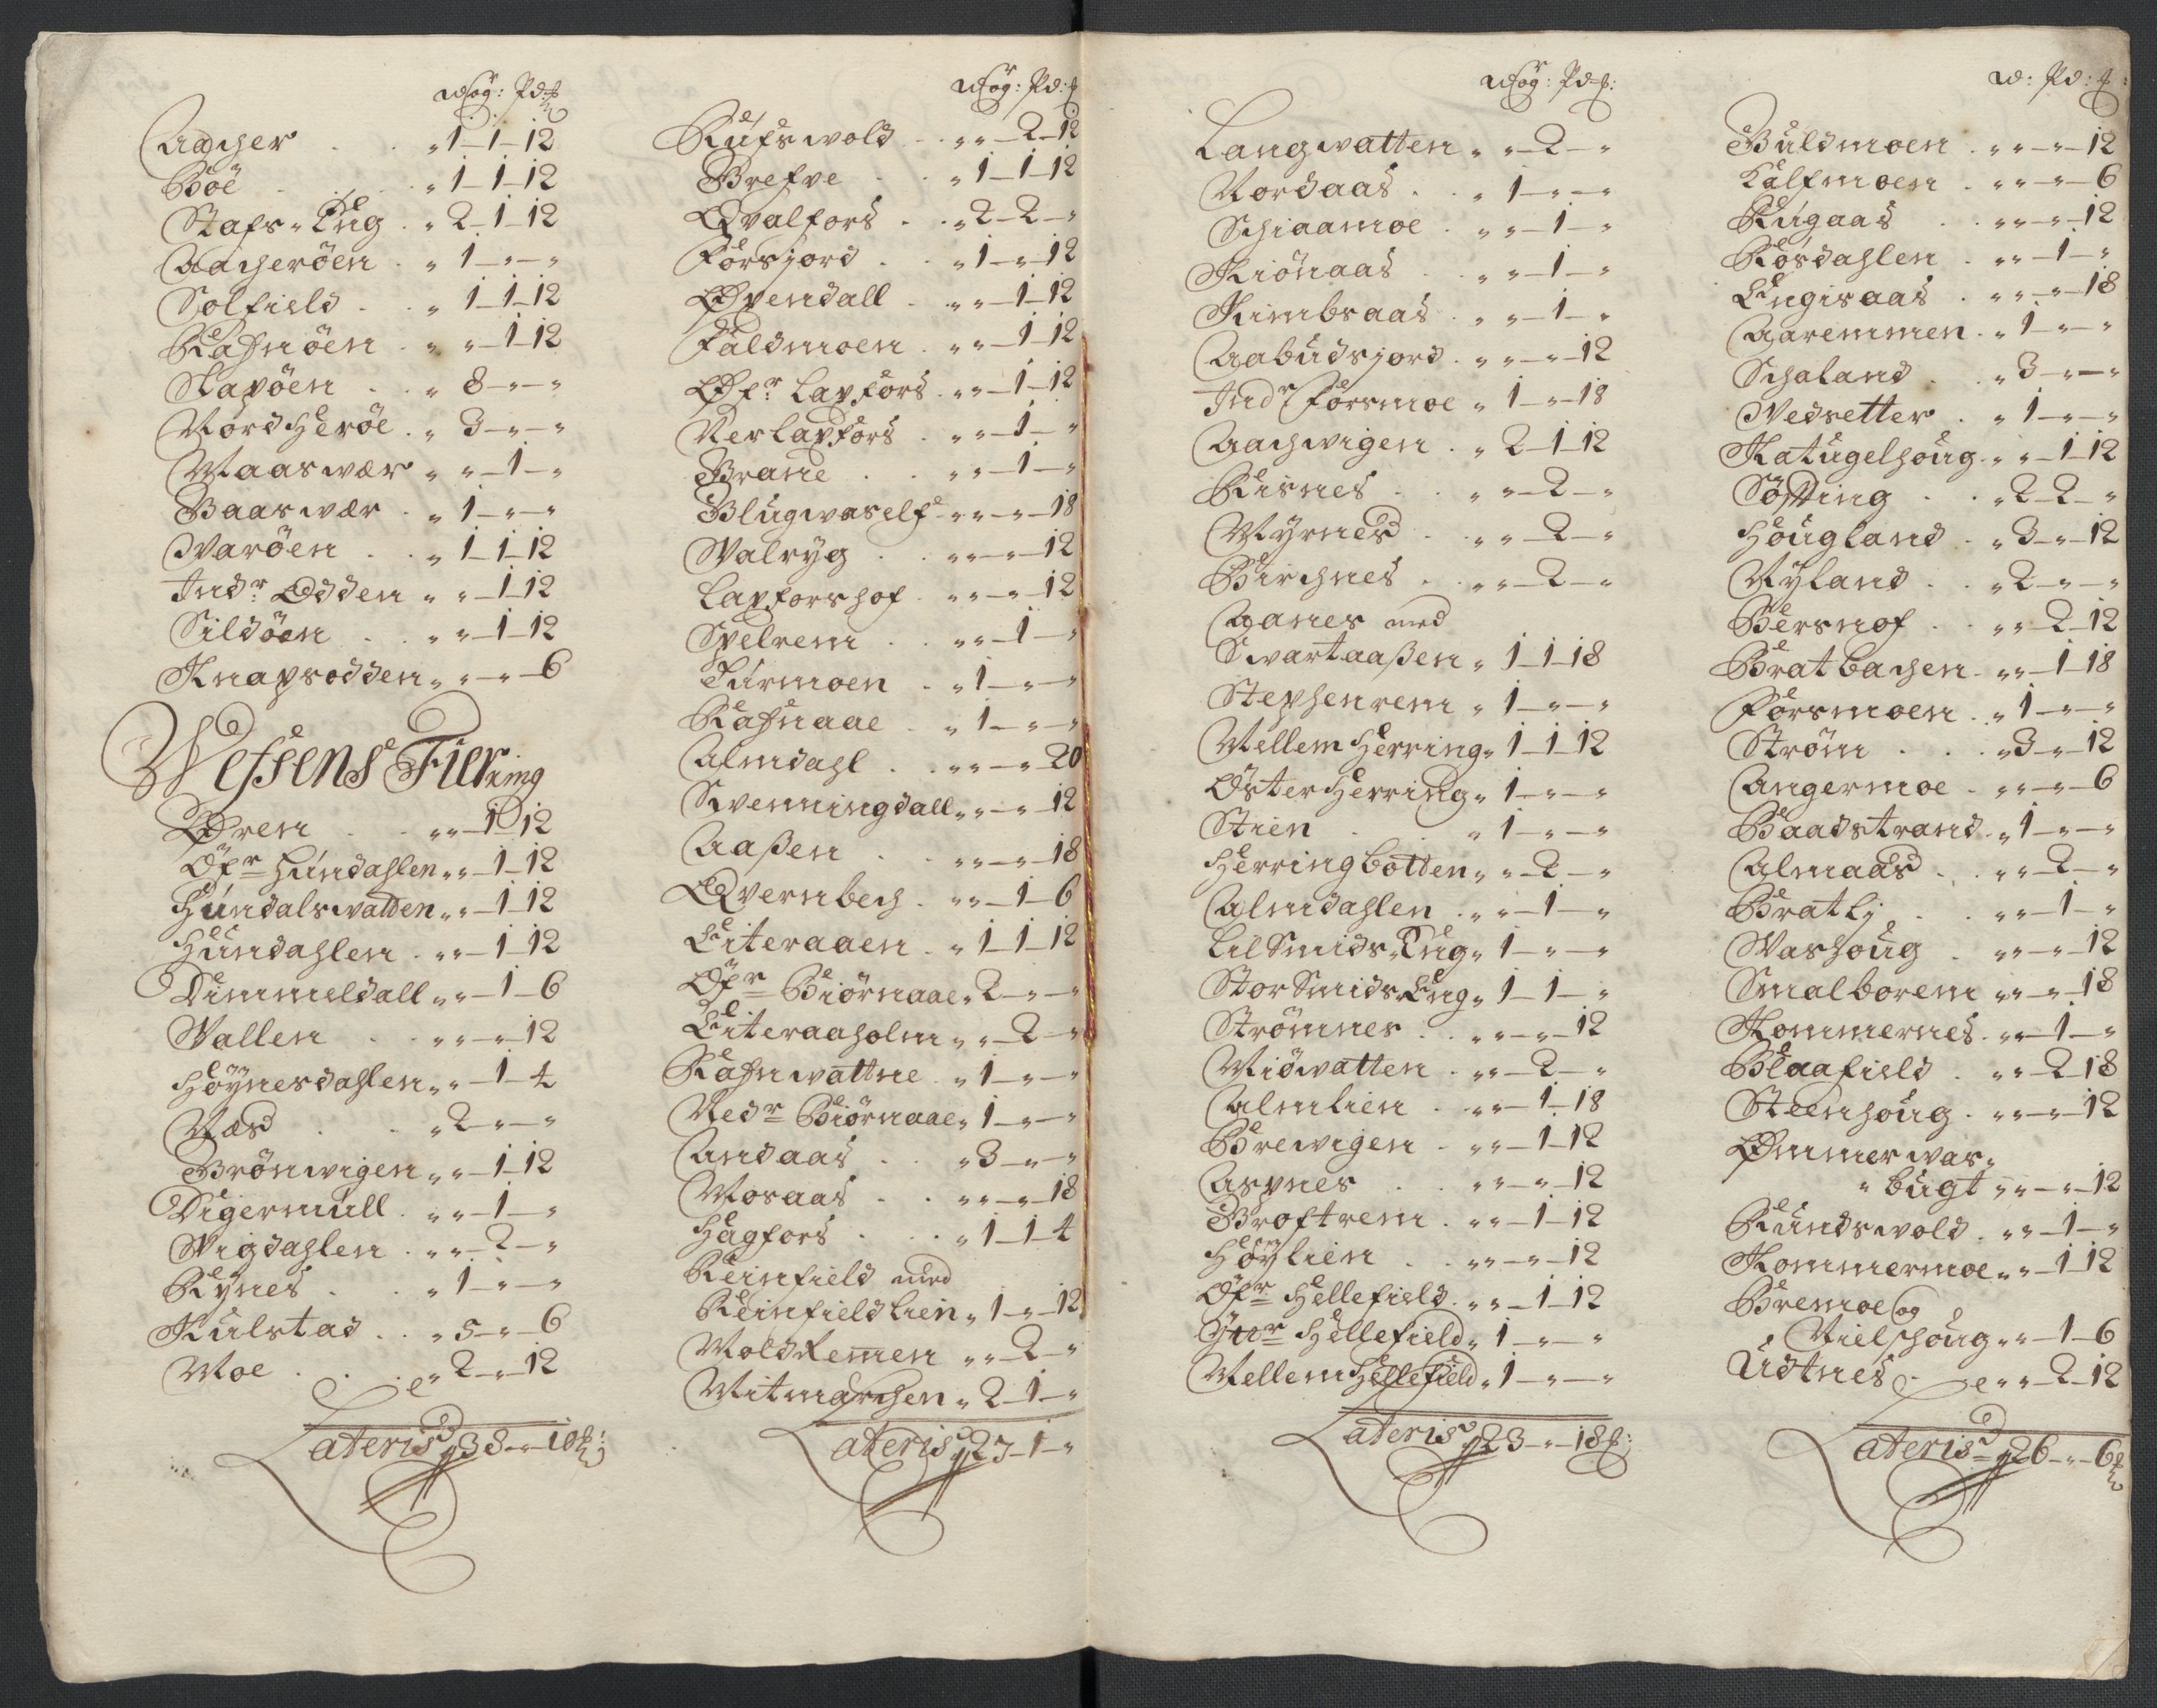 Wog: Pd: ℔
Aacher . . „ 1-1-12
Böe . . „ 1-1-12
Stafs-Eng . „ 2-1-12
Aacheröen . „ 1-„-„
Solfield . . „ 1-1-12
Rafnöen . „ „-1-12
Slapöen . „ 8-„-„
Nord Heröe . „ 3-„-„
Maaswær „ „-1-„
Baaswær . „ 1-„-„
Waröen . . „ 1-1-12
Indr Odden „ „-1-12
Sildöen . . „ „-1-12
Knapsodden „ „-„-6
Wefsens Fierring
Øren . . „ „-1-12
Öfr Hundahlen „ „-1-12
Hundalswatten „ „-1-12
Hundahlen . „ „-1-12
Dimmeldall „ „-1-6
Wallen . . „ „-„-12
Höynesdahlen „ „-1-4
Næs . . „ 2-„-„
Brönwigen „ „-1-12
Digermull . „ „-1-„
Wigdahlen . „ „-2-„
Rynes . . „ 1-„-„
Kulstad . . „ 5-„-6
Moe . . . „ 2-„-12
Lateris 38-„-10 ℔:
Wog: Pd: ℔
Rufswold . . „ „-2-12
Brefve . . „ 1-1-12
Qvalfors . . „ 2-2-„
Forsjord . . „ 1-„-12
Qvendall . „ „-1-12
Faldmoen . „ „-1-12
Öfr: Lapfors . „ „-1-12
Ner Lapfors . „ „-1-„
Brane . . „ „-1-„
Blugwaself „ „-„-18
Walryg . . „ „-„-12
Lapforshof . „ „-„-12
Spelrem . . „ „-1-„
Turmoen . „ 1-„-„
Rafnaae . „ 1-„-„
Almdahl . . „ „-„-20
Svenningdall „ „-„-12
Aaßen . . „ „-„-18
Qvernbech . „ „-1-6
Eiteraaen . „ 1-1-12
Öfr Biörnaae „ 2-„-„
Eiteraaholm „ „-2-„
Rafnwattne . „ 1-„-„
Nedr Biörnaae „ 1-„-„
Andaas . . „ 3-„-„
Mosaas . . „ „-„-18
Hagfors . . „ 1-1-4
Reinfield med
Reinfieldlien „ 1-„-12
Moldremen „ „-2-„
Mitmarchen „ 2-1-„
Lateris 27-1-„
Wog: Pd: ℔:
Langwatten „ „-2-„
Nordaas . . „ 1-„-„
Schiaamoe . „ „-1-„
Kiönaas . . „ „-1-„
Kimbsaas . „ „-1-„
Aabudsjord . „ „-„-12
Indr Forsmoe „ 1-„-18
Aachwigen . „ 2-1-12
Risnes . . „ „-2-„
Myrnes . . „ „-2-„
Birchnes . . „ „-2-„
Aanes med
Swartaaßen „ 1-1-18
Stephenrem „ 1-„-„
Mellem Herring „ 1-1-12
Öster Herring „ 1-„-„
Stien . . „ 1-„-„
Herringbotten „ „-2-„
Almdahlen . „ „-1-„
Lil Smids-Eng „ 1-„-„
Stor Smids-Eng „ 1-1-„
Strömnes . . „ „-„-12
Miöwatten . „ „-2-„
Almlien . „ „-1-18
Brewigen . „ „-1-12
Aspnes . . „ „-„-12
Broftrem . „ „-1-12
Höylien . . „ „-„-12
Öfr Hellefield . „ „-1-12
Ýttr Hellefield „ 1-„-„
Mellem Hellefield „ 1-„-„
Lateris 23-„-18 ℔:
W: Pd: ℔:
Buldmoen . „ „-„-12
Kalfmoen . „ „-„-6
Rugaas . . „ „-„-12
Rösdahlen . „ „-1-„
Engisaas . „ „-„-18
Aaremmen . „ 1-„-„
Schaland . . „ 3-„-„
Wedsetter . „ 1-„-„
Katugelhoug . „ „-1-12
Söffting . . „ 2-2-„
Hougland . „ 3-„-12
Nyland . . „ 2-„-„
Bersnof . . „ „-2-12
Bratbachen . „ „-1-18
Forsmoen . „ 1-„-„
Ström . . . „ 3-„-12
Angermoe . „ „-„-6
Baadstrand . „ 1-„-„
Almaas . . „ „-2-„
Bratli . . „ „-1-„
Washoug . „ „-„-12
Smalborem „ „-„-18
Kommernes . „ „-1-„
Blaafield . „ „-2-18
Steenhoug . „ „-„-12
Ømmerwas-
„ bugt „ „-„-12
Rundswold . „ „-1-„
Kommermoe „ „-1-12
Bremoe og
Nielshoug „ „-1-6
Udtnes . „ „-2-12
Lateris 26-„-6 ℔